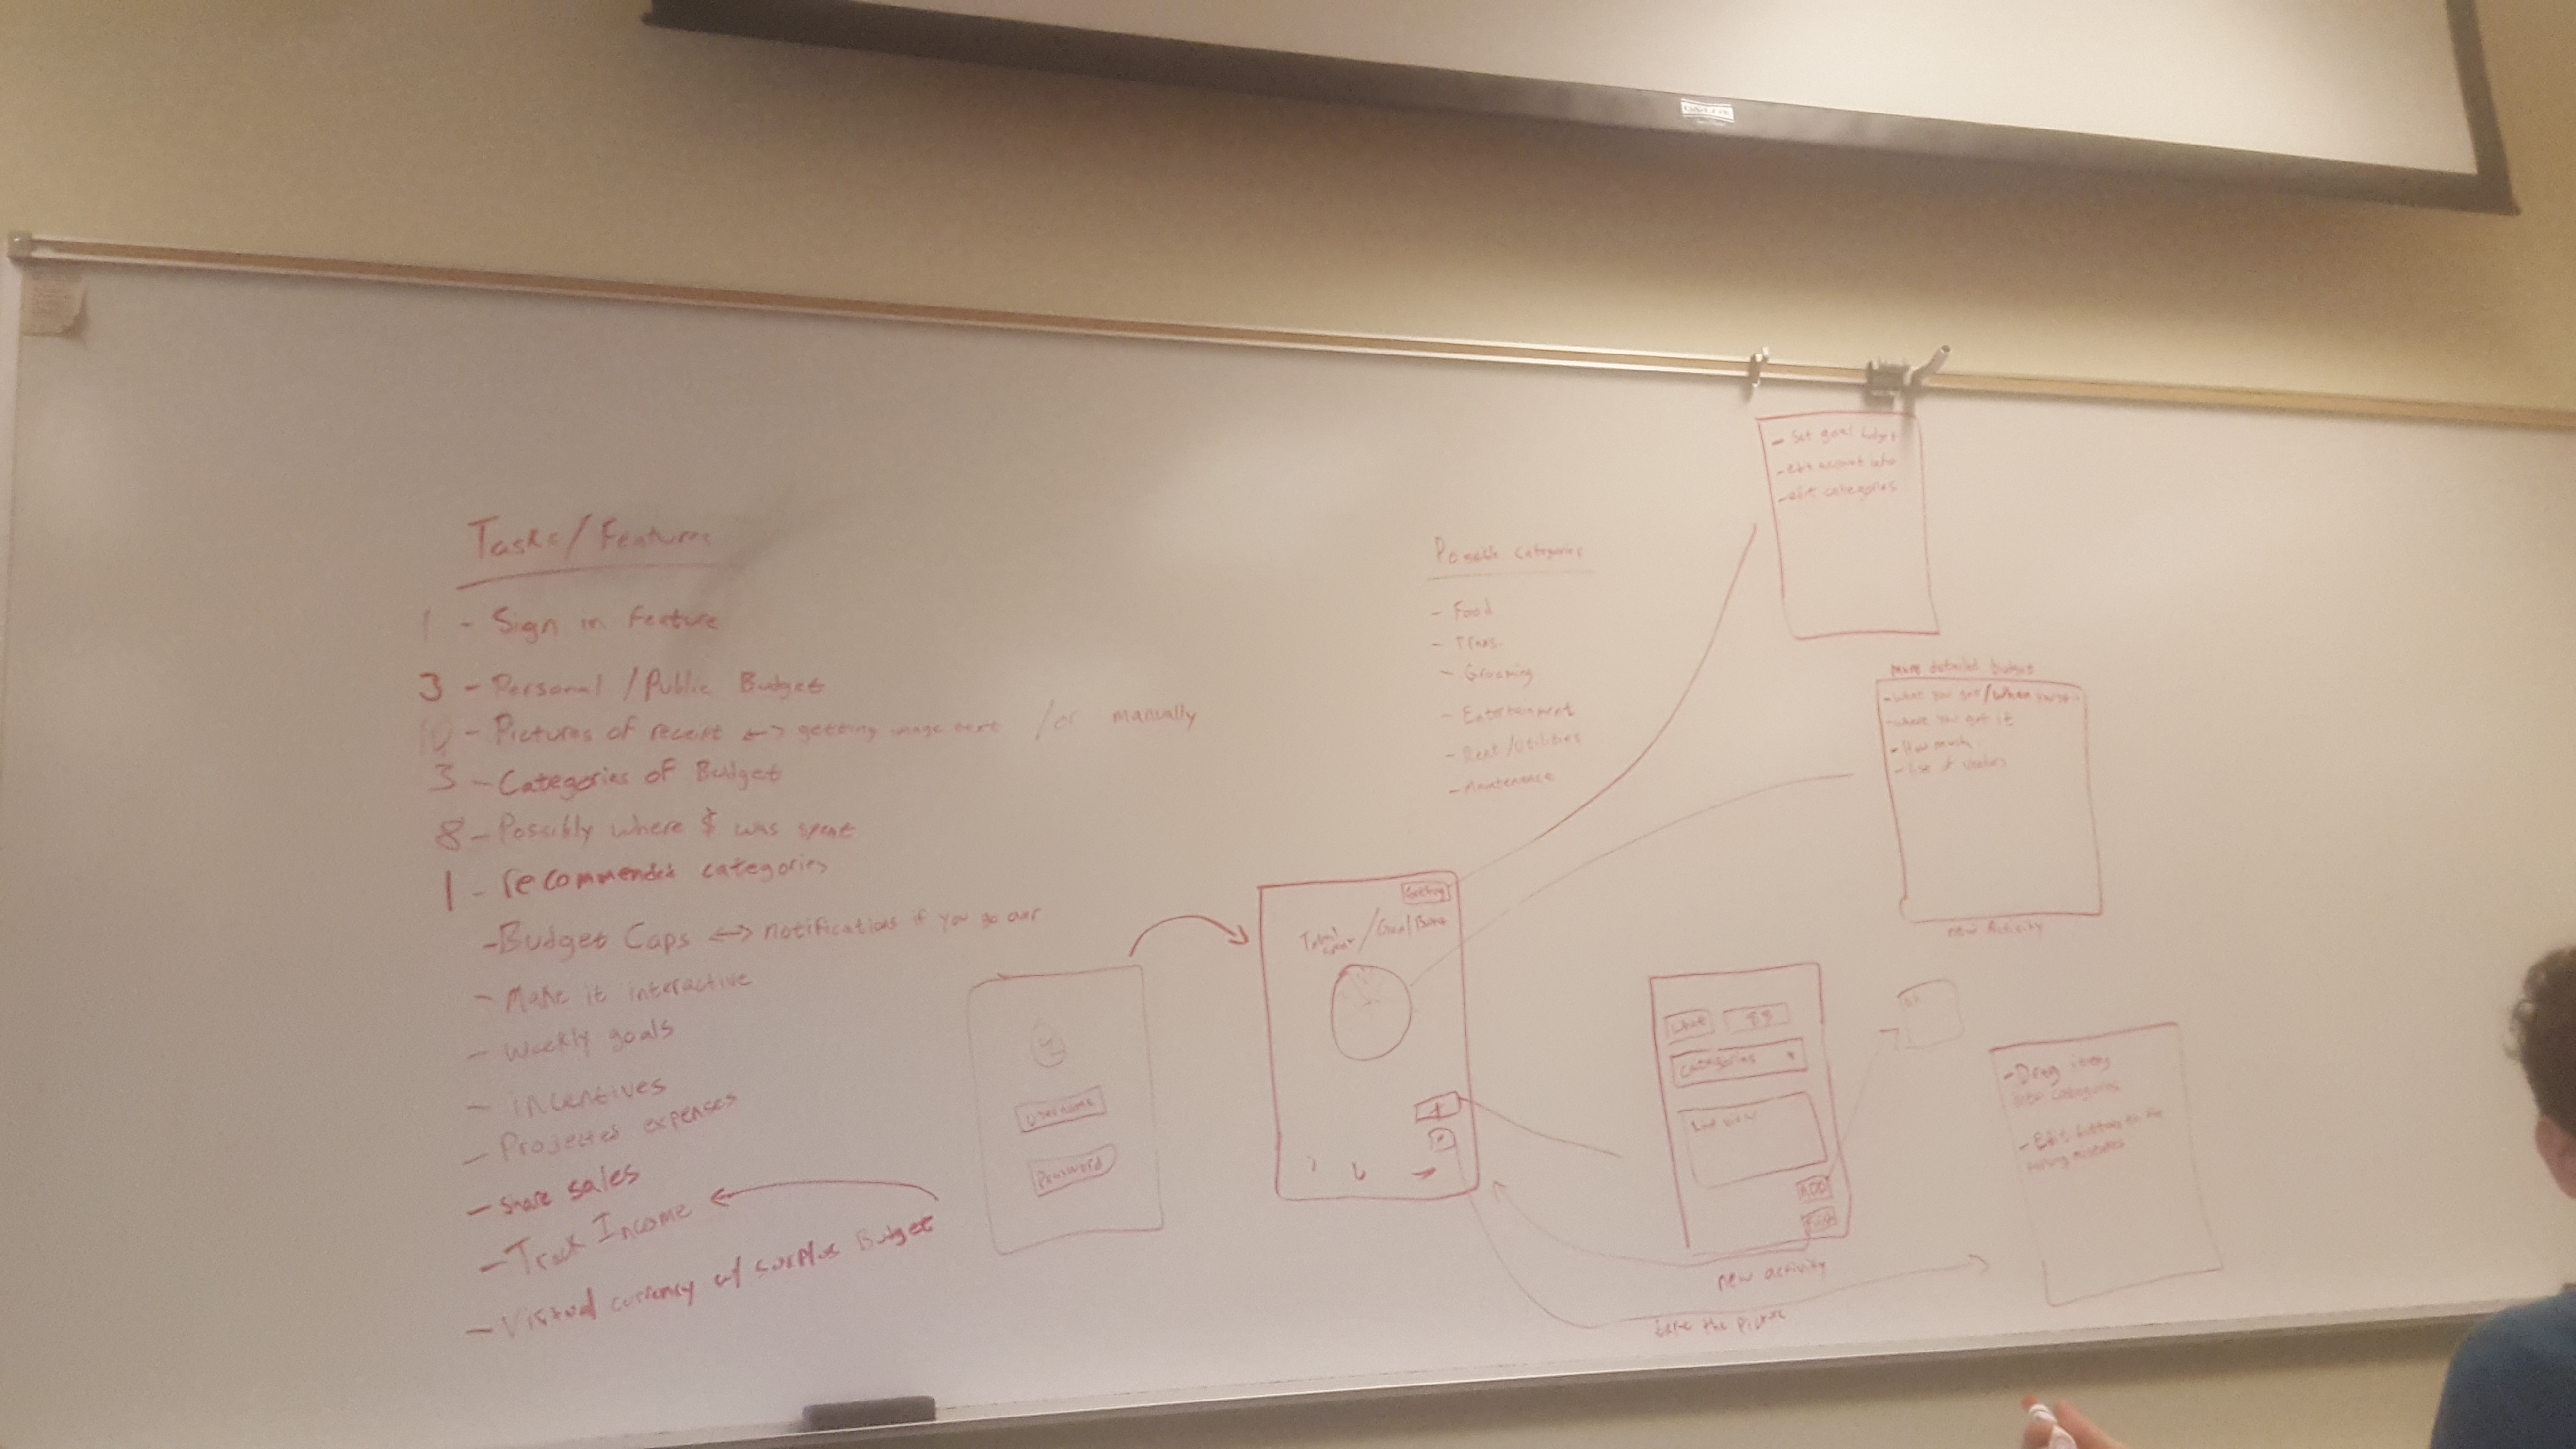 Tasks/Features
1 - Sign in Feature
3 - Personal / Public Budget
10 - Pictures of receipt <-> getting image text / or manually
3 - Categories of Budget
8 - Possibly where $ was spent
1 - recommended categories
- Budget Caps <-> notifications if you go over
- Make it interactive
- Weekly goals
- incentives
- Projected expenses
- share sales
- Track Income
- currency w/ surplus Budget
Username
Password
Possible categories
- Food
- Trans.
- Grooming
- Entertainment
- Rent/Utilities
- Maintenence
Total spent / Goal
+
- Set goal budget
- edit account info
- edit categories
more detailed budget
- what you got/when
- where you got it
- How much
- list of
new Activity
what $$
categories
List view
ADD
new activity
take the picture
- Drag items
into categories
- Edit button to fix